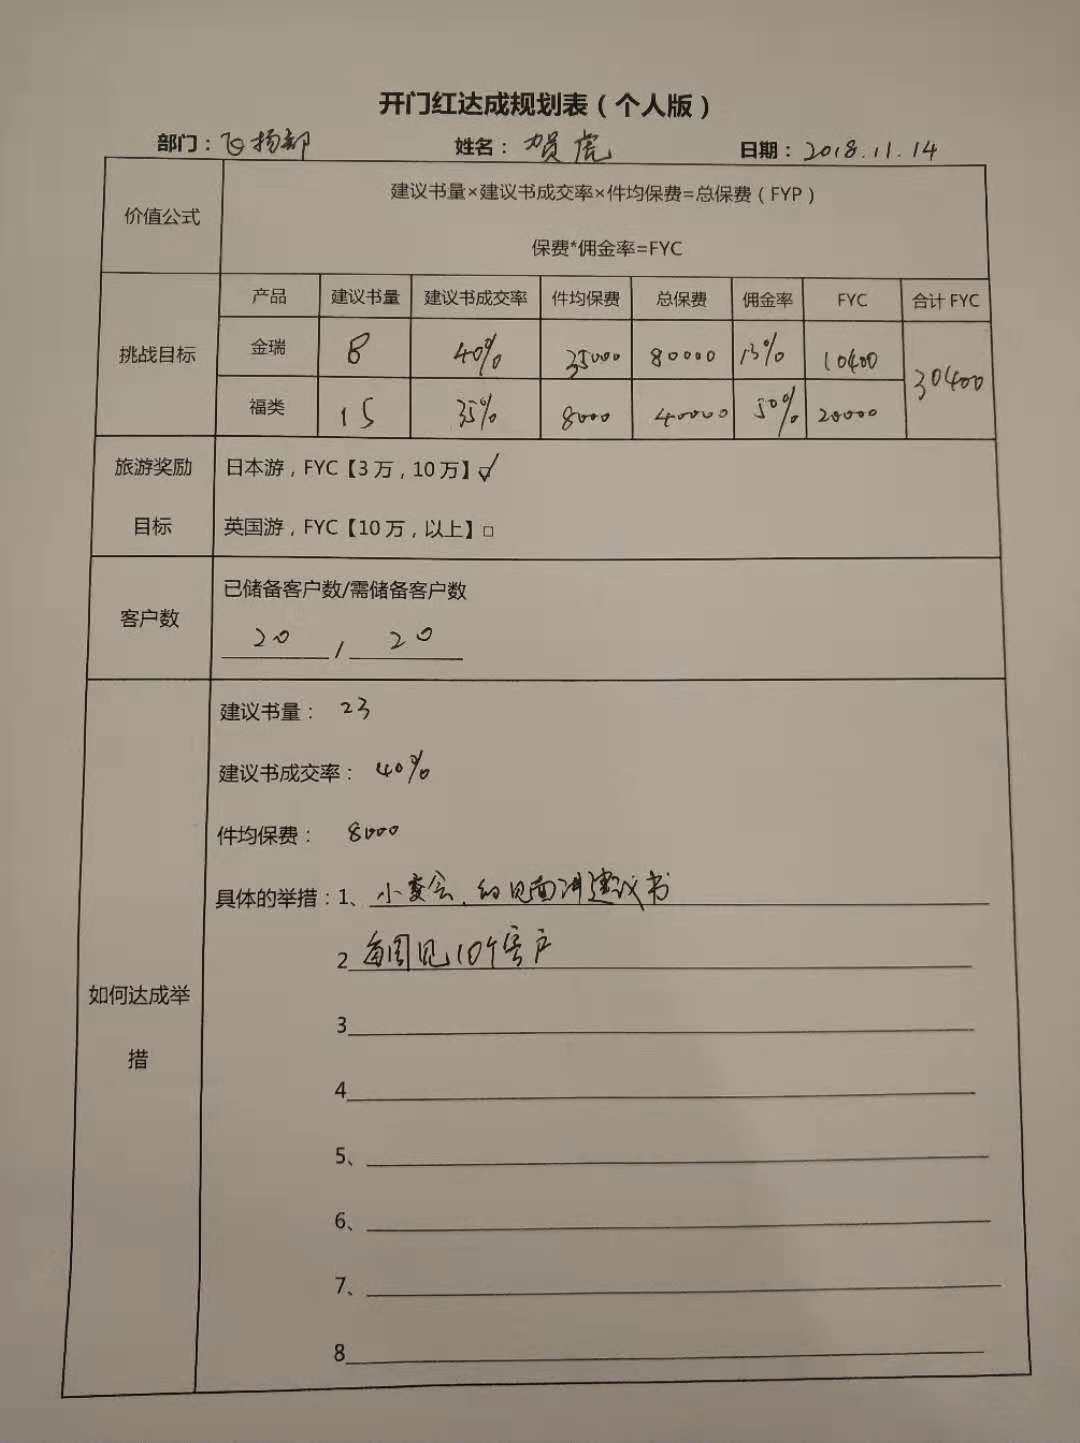 开门红达成规划表（个人版）
部门：飞扬部 姓名：贺虎 日期：2018.11.14
价值公式
建议书量×建议书成交率×件均保费=总保费（FYP）
保费*佣金率=FYC
挑战目标
产品 建议书量 建议书成交率 件均保费 总保费 佣金率 FYC 合计 FYC
金瑞 8 40% 35000 80000 13% 10400 30400
福类 15 35% 8000 40000 50% 20000
旅游奖励
目标
日本游，FYC【3 万，10 万】☑
英国游，FYC【10 万，以上】□
客户数
已储备客户数/需储备客户数
20 / 20
如何达成举
措
建议书量： 23
建议书成交率： 40%
件均保费： 8000
具体的举措：1、小宴会，约见面讲建议书
2 每周见10个客户
3
4
5、
6、
7、
8